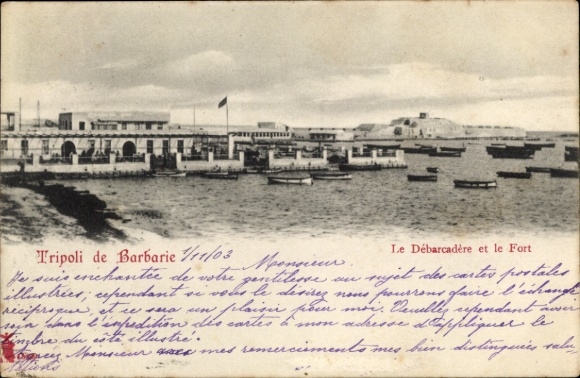 Tripoli de Barbarie 1/11/03
Le Débarcadère et le Fort
Monsieur
Je suis enchantée de votre gentilesse au sujet des cartes postales
illustrées, cependant si vous le désirez nous pourrons faire l'échange
réciproque, et ce sera un plaisir pour moi. Veuillez cependant avoir
soin dans l'expédition des cartes à mon adresse d'appliquer le
timbre du coté illustré.
Monsieur mes remerciements mes bien distinguées salu-
tations